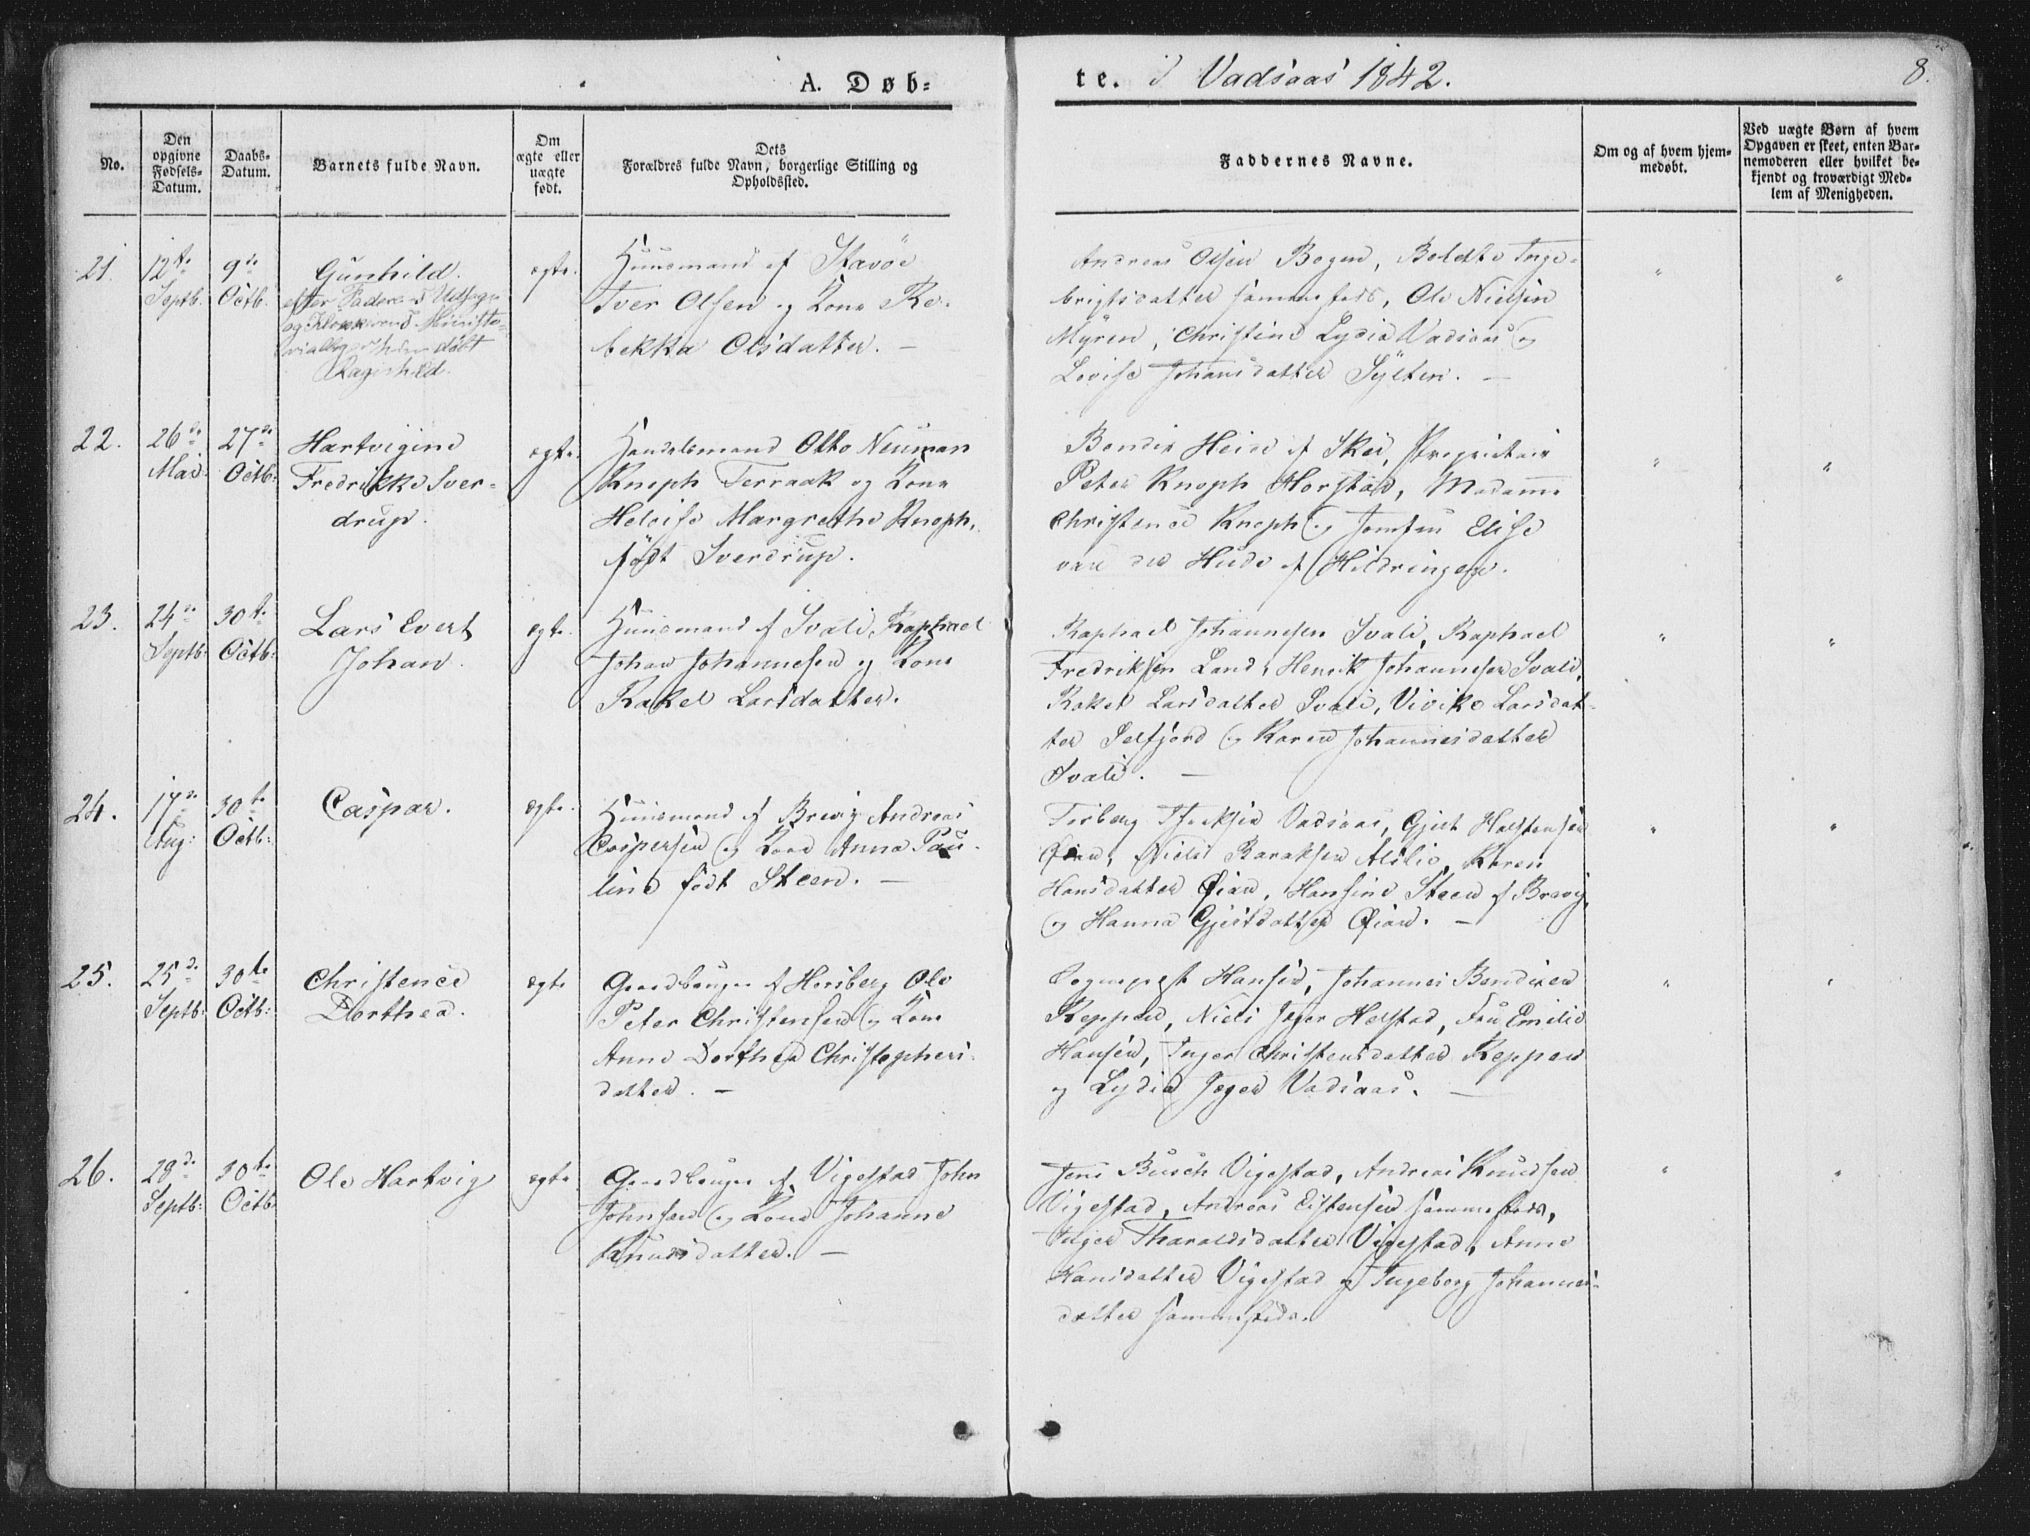 A. Døb=
te. i Vadsaas 1842.
8.
No.
Den
opgivne
Fødsels-
Datum.
Daabs-
Datum.
Barnets fulde Navn.
Om
ægte eller
uægte
født.
Dets
Forældres fulde Navn, borgerlige Stilling og
Opholdssted.
Faddernes Navne.
Om og af hvem hjem-
medøbt.
Ved uægte Børn af hvem
Opgaven er skeet, enten Bar-
nemoderen eller hvilket be-
kjendt og troværdigt Med-
lem af Menigheden.
21.
12te
Septb.
9de
Octb.
Gunhild.
efter Faderens Udsagn
og Klokkerens Ministe-
døbt
Ragnhild.
ægte.
Huusmand af Stavöe
Iver Olsen og Kone Re-
bekka Olsdatter. —
Andreas Olsen Bogen, Boldte Inge-
brigtsdatter sammesteds, Ole Nielsen
Myren, Christine Lydia Vadsaas og
Lovise Johansdatter Sylten. —
"
"
22.
26de
Mai
27de
Octb.
Hartvigine
Fredrikke Sver-
drup.
ægte.
Handelsmand Otto Neuman
Knoph Terraak og Kone
Heloise Margrethe Knoph,
født Sverdrup.
Bendix Heide af Skei, Proprietair
Peter Knoph Horstad, Madame
Christence Knoph og Jomfru Elise
van der Hude af Hildringen.
"
"
23.
24de
Septb:
30te
Octb:
Lars Evert
Johan.
ægte.
Huusmand af Svali, Raphael
Johan Johannesen og Kone
Rakel Larsdatter.
Raphael Johannesen Svali, Raphael
Fredriksen Land, Henrik Johannesen Svali,
Rakel Larsdatter Svali, Vivike Larsdat-
ter Selfjord og Karen Johannesdatter
Svali. —
"
"
24.
17de
Aug:
30te
Octb:
Caspar.
ægte.
Huusmand af Brevig Andreas
Caspersen og Kone Anna Pau-
line født Steen. —
Torberg Isaksen Vadsaas, Gjert Halstensen
Øian, Niels Baraksen Alslie, Karen
Hansdatter Øian, Hansine Steen af Brevig,
og Hanna Gjertsdatter Øian. —
"
"
25.
25de
Septb:
30te
Octb:
Christence
Dorthea.
ægte
Gaardbruger af Horsberg Ole
Peter Christensen og Kone
Anne Dorthea Christophers-
datter. —
Sognepræst Hansen, Johannes Bendixen
Reppen, Niels Jæger Helstad, Frue Emilie
Hansen, Inger Christensdatter Reppen
og Lydia Jæger Vadsaas. —
"
"
26.
28de
Septb:
30te
Octb:
Ole Hartvig
ægte
Gaardbruger af Vigestad John
Johnsen og Kone Johanne
Knudsdatter. —
Jens Busch Vigestad, Andreas Knudsen
Vigestad, Andreas Eistensen sammesteds,
Inger Tharaldsdatter Vigestad, Anne
Hansdatter Vigestad og Ingeborg Johannes-
datter sammesteds.
"
"